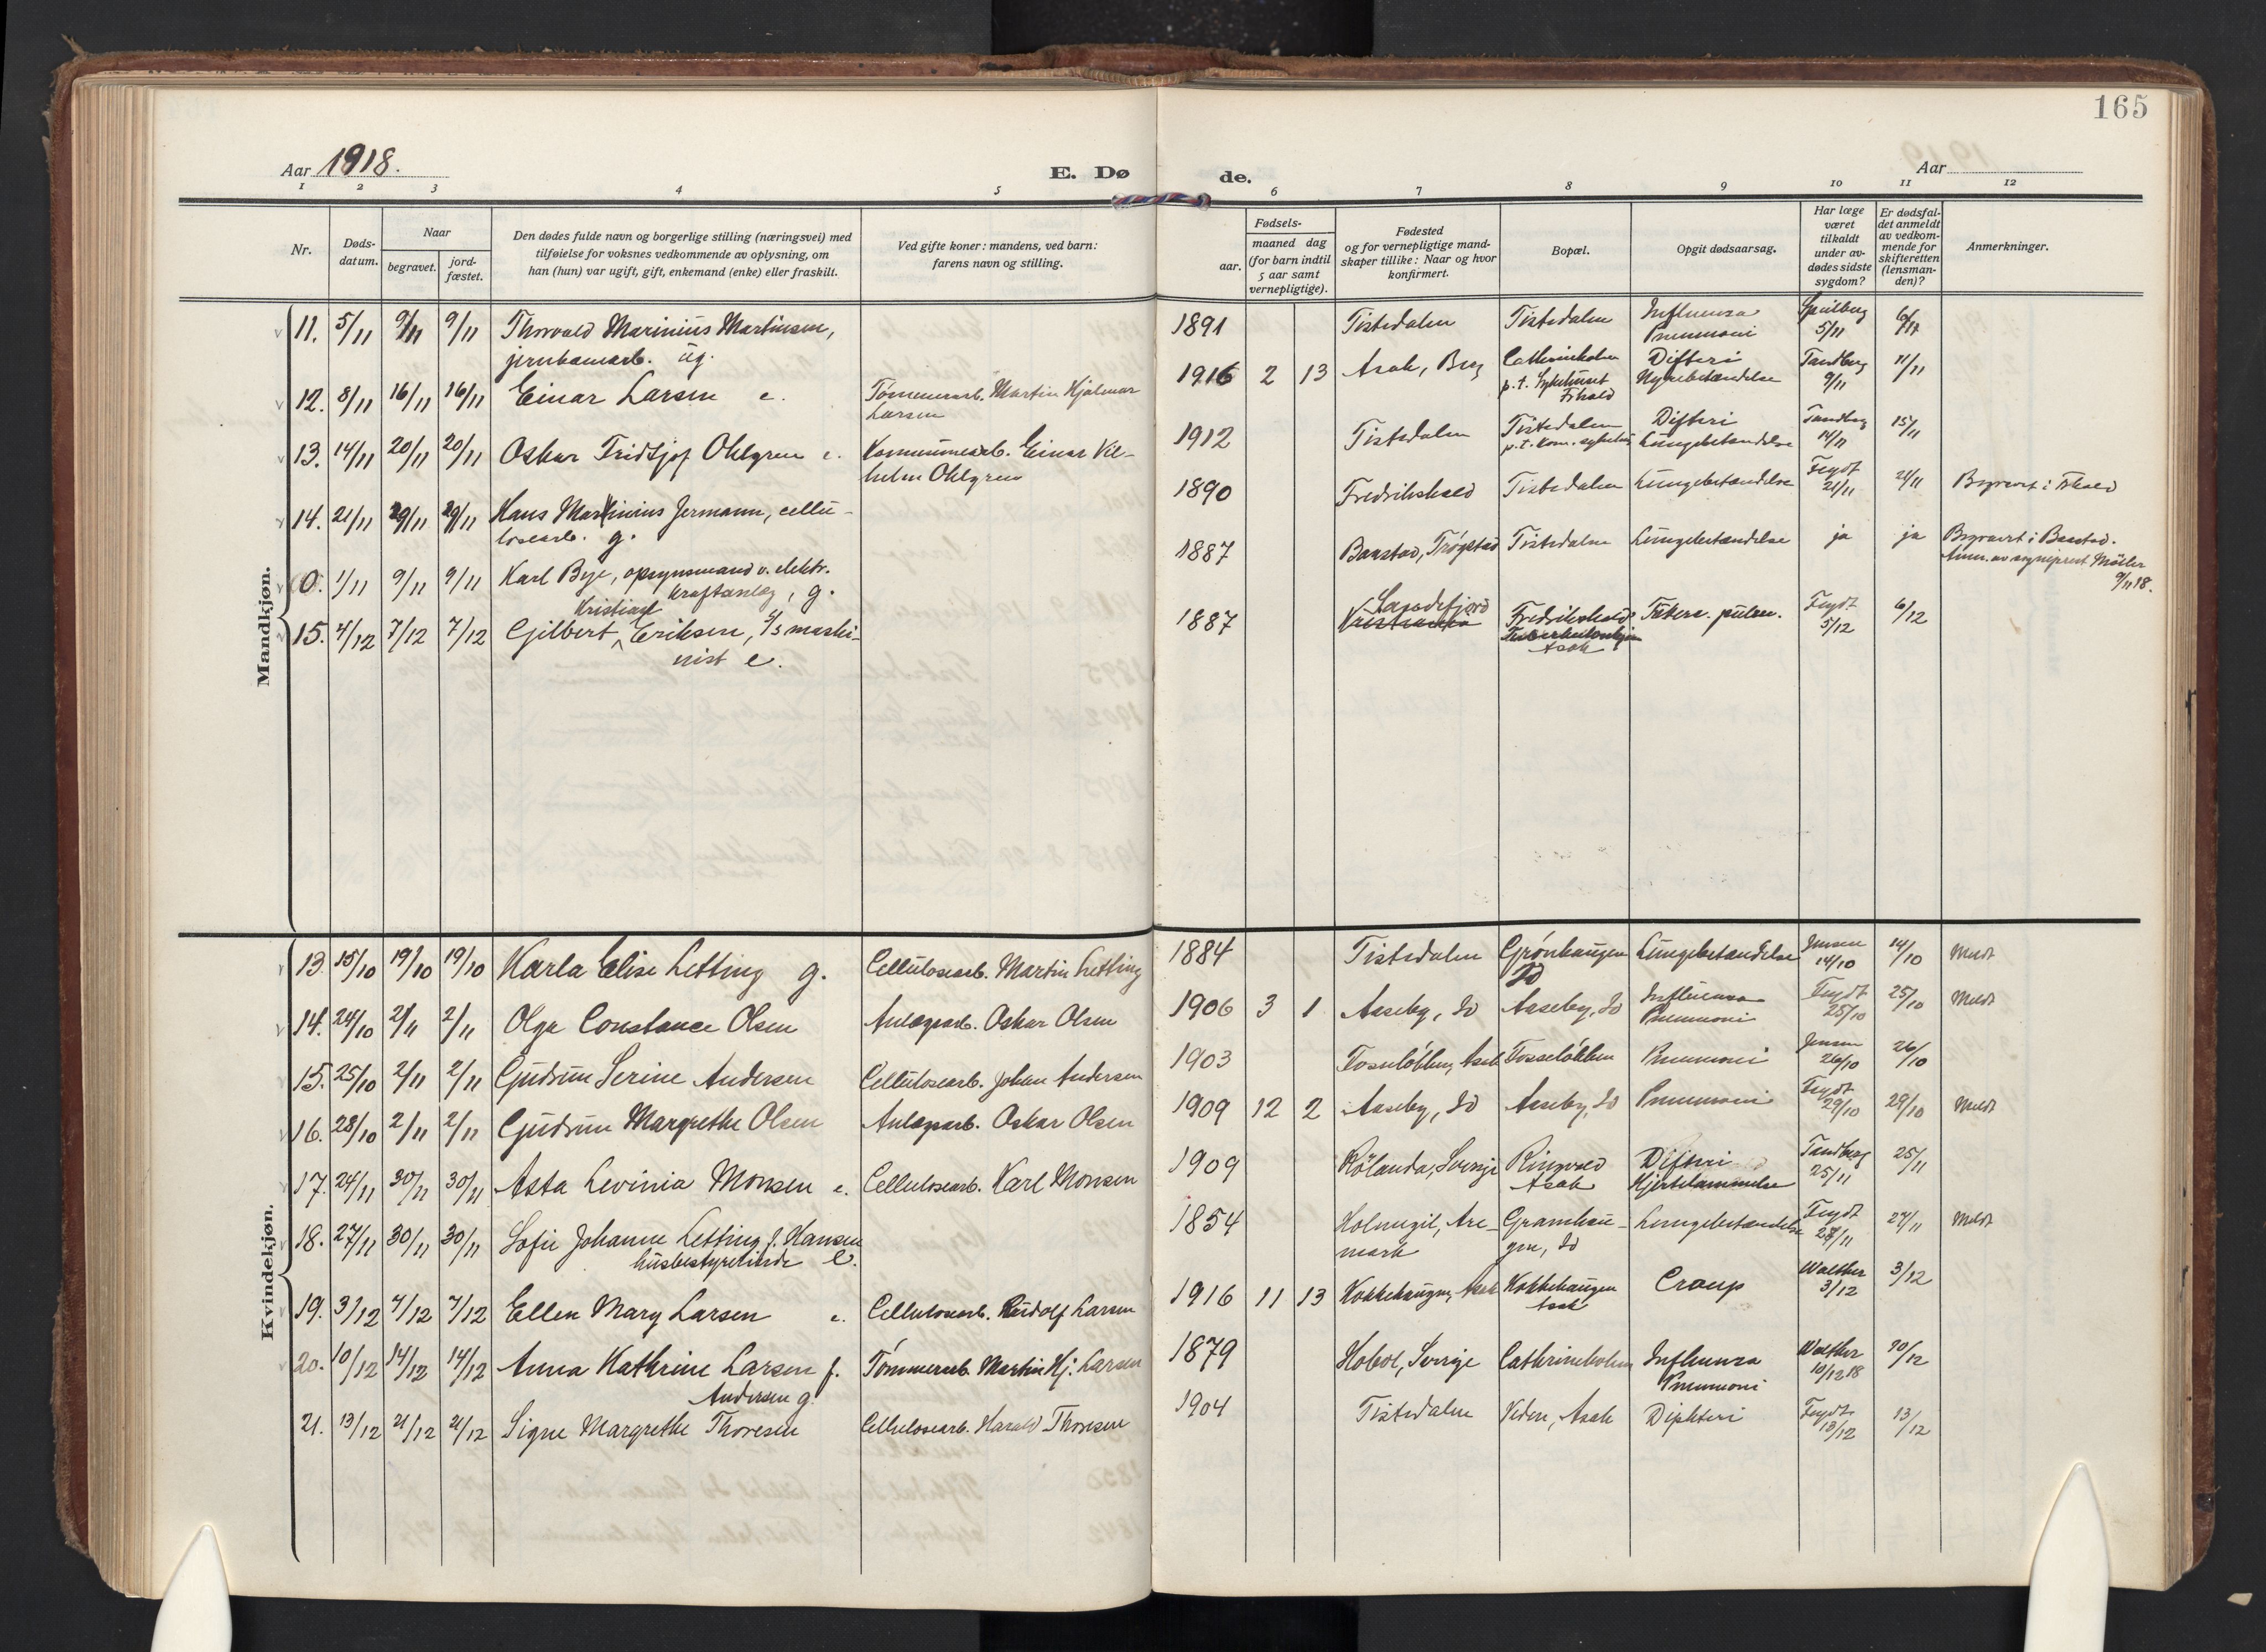 165
Aar 1918.
E. Dø
de.
Aar
1 2 3 4 5 6 7 8 9 10 11 12
Nr.
Døds-
datum.
Naar
begravet.
jord-
fæstet.
Den dødes fulde navn og borgerlige stilling (næringsvei) med
tilføielse for voksnes vedkommende av oplysning, om
han (hun) var ugift, gift, enkemand (enke) eller fraskilt.
Ved gifte koner: mandens, ved barn:
farens navn og stilling.
Fødsels-
aar.
maaned dag
(for barn indtil
5 aar samt
vernepligtige).
Fødested
og for vernepligtige mand-
skaper tillike: Naar og hvor
konfirmert.
Bopæl.
Opgit dødsaarsag.
Har læge
været
tilkaldt
under av-
dødes sidste
sygdom?
Er dødsfal-
det anmeldt
av vedkom-
mende for
skifteretten
(lensman-
den)?
Anmerkninger.
Mandkjøn.
11. 5/11 9/11 9/11 Thorvald Marinius Martinsen, 1891 Tistedalen Tistedalen Influensa 5/11 6/11
jernbanearb. ug. Pneumoni
12. 8/11 16/11 16/11 Einar Larsen e. Tømmerarb. Martin Hjalmar 1916 2 13 Asak, Berg Cathrineholm Difteri Tandberg 9/11 11/11
Larsen p.t. Sykehuset Frhald Nyrebetændelse
13. 14/11 20/11 20/11 Oskar Fridtjof Ohlgren e. Kommunearb. Einar Vil- 1912 Tistedalen Tistedalen Difteri Tandberg 14/11 15/11
helm Ohlgren p.t. kom. sykehus Lungebetændelse
14. 21/11 29/11 29/11 Hans Martinius Jermann, cellu- 1890 Fredrikshald Tistedalen Lungebetændelse Feydt 21/11 21/11 Begravet i Frhald
losearb. g.
0. 1/11 9/11 9/11 Karl Bye, opsynsmand v. elektr. 1887 Baastad, Trøgstad Tistedalen Lungebetændelse ja ja Begravet i Baastad.
kraftanlæg, g. Anm. av sogneprest Møller
9/11 18.
15. 4/12 7/12 7/12 Gilbert Kristian Eriksen, maski- 1887 Sandefjord Fredrikshald Feydt 5/12 6/12
nist e. Kristiania Asak
Kvindekjøn.
13. 15/10 19/10 19/10 Karla Elise Letting g. Cellulosearb. Martin Letting 1884 Tistedalen Grønhaugen Lungebetændelse Jensen 14/10 14/10 Meldt
Id
14. 24/10 2/11 2/11 Olga Constance Olsen Anlægsarb. Oskar Olsen 1906 3 1 Aaseby, Id Aaseby, Id Influensa Feydt 25/10 25/10 Meldt
Pneumoni
15. 25/10 2/11 2/11 Gudrun Serine Andersen Cellulosearb. Johan Andersen 1903 Fosseløkken, Asak Fosseløkken Pneumoni Jensen 26/10 26/10
16. 28/10 2/11 2/11 Gudrun Margrethe Olsen Anlægsarb. Oskar Olsen 1909 12 2 Aaseby, Id Aaseby, Id Pneumoni Feydt 29/10 29/10 Meldt
17. 24/11 30/11 30/11 Asta Levinia Monsen e. Cellulosearb. Karl Monsen 1909 Rölanda, Sverige Ringvold Difteri Tandberg 25/11 25/11
Asak Hjertelammelse
18. 27/11 30/11 30/11 Sofie Johanne Letting f. Hansen 1854 Holmegil, Are- Gramhau- Lungebetændelse Feydt 28/11 27/11 Meldt
husbestyrerinde e. mark gen, Id
19. 3/12 7/12 7/12 Ellen Mary Larsen e. Cellulosearb. Rudolf Larsen 1916 11 13 Kokkehaugen, Asak Kokkehaugen Croup Walther 3/12 3/12
Asak
20. 10/12 14/12 14/12 Anna Kathrine Larsen f. Tømmerarb. Martin Hj. Larsen 1879 Sverige Cathrineholm Influensa Walther 10/12 18 10/12
Andersen g. Pneumoni
21. 13/12 21/12 21/12 Signe Margrethe Thoresen Cellulosearb. Harald Thoresen 1904 Tistedalen Veden, Asak Diphteri Feydt 13/12 13/12